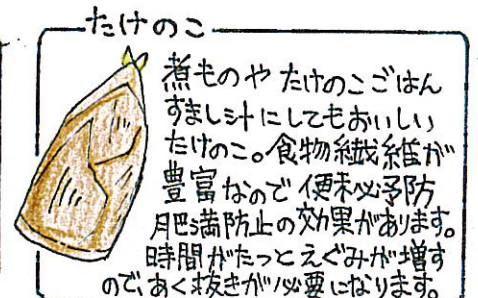 たけのこ
煮ものや たけのこごはん
すまし汁にしてもおいしい
たけのこ。食物繊維が
豊富なので 便秘予防
肥満防止の効果があります。
時間がたっとえぐみが増す
ので、あく抜きが必要になります。